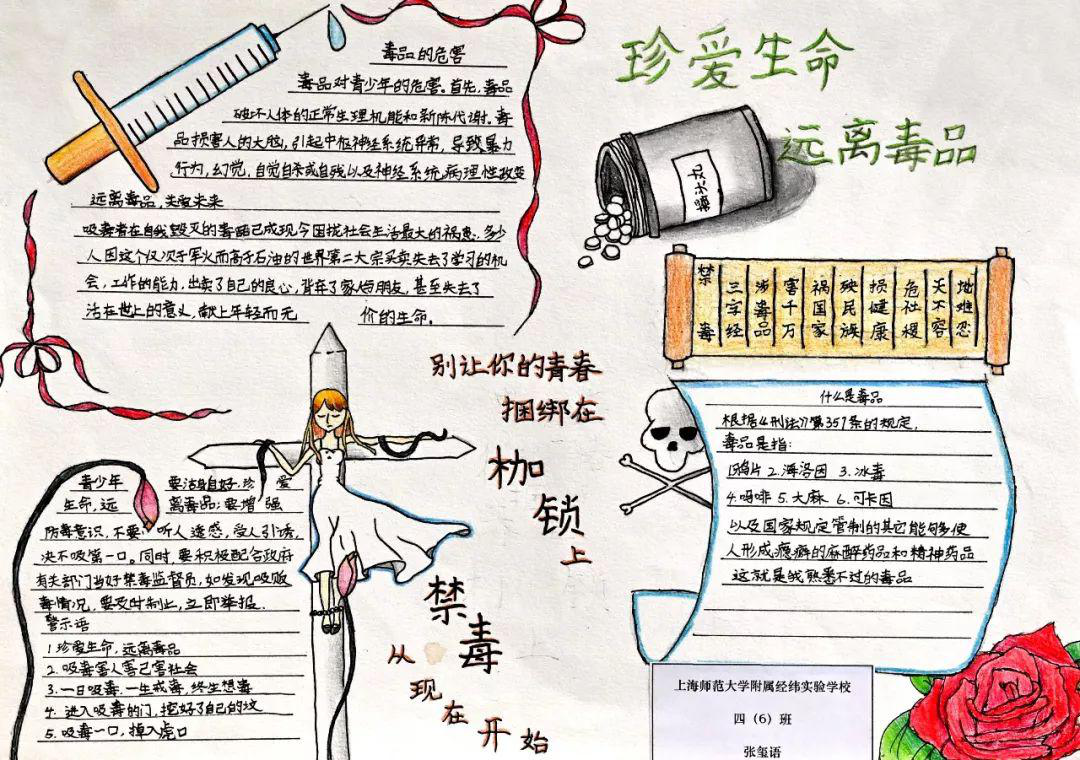 毒品的危害
毒品对青少年的危害。首先,毒品
破坏人体的正常生理机能和新陈代谢。毒
品损害人的大脑,引起中枢神经系统异常,导致暴力
行为,幻觉,自觉自杀或自残以及神经系统病理性改变
远离毒品,关爱未来
吸毒者在自我毁灭的毒品已成现今困扰社会生活最大的祸患,多少
人因这个仅次于军火而高于石油的世界第二大宗买卖失去了学习的机
会,工作的能力,出卖了自己的良心,背弃了家人与朋友,甚至失去了
活在世上的意义,献上年轻而无价的生命。
珍爱生命
远离毒品
禁毒
三字经
涉毒品
害千万
祸国家
殃民族
损健康
危社稷
天不容
地难忍
别让你的青春
捆绑在
枷
锁
上
什么是毒品
根据《刑法》第357条的规定,
毒品是指:
1.鸦片 2.海洛因 3.冰毒
4.吗啡 5.大麻 6.可卡因
以及国家规定管制的其它能够使
人形成瘾癖的麻醉药品和精神药品
这就是我熟悉不过的毒品
青少年要洁身自好,珍爱
生命,远离毒品;要增强
防毒意识,不要听人
受人引诱,
决不吸第一口。同时要积极配合政府
有关部门当好禁毒监督员,如发现吸贩
毒情况,要及时制止,立即举报.
警示语
1.珍爱生命,远离毒品
2.吸毒害人害己害社会
3.一日吸毒.一生戒毒,终生想毒
4.进入吸毒的门,挖好了自己的坟
5.吸毒一口,掉入虎口
禁毒
从现在开始
上海师范大学附属经纬实验学校
四(6)班
张玺语